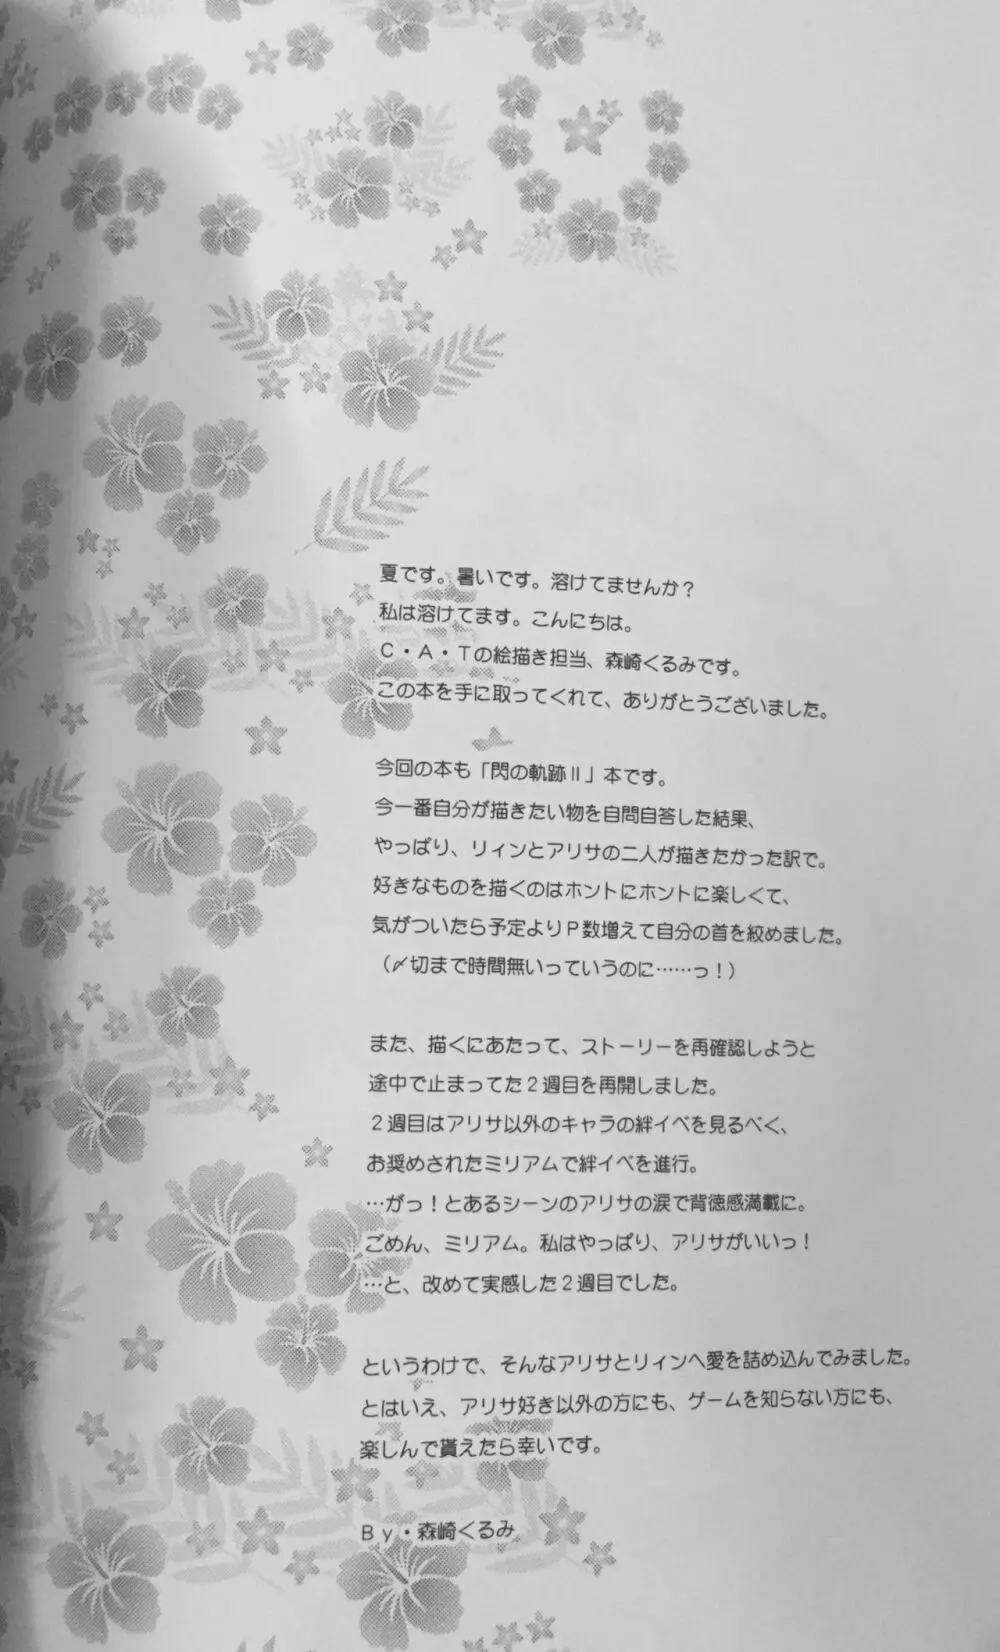 夏です。暑いです。溶けてませんか？
私は溶けてます。こんにちは。
Ｃ・Ａ・Ｔの絵描き担当、森崎くるみです。
この本を手に取ってくれて、ありがとうございました。
今回の本も「閃の軌跡Ⅱ」本です。
今一番自分が描きたい物を自問自答した結果、
やっぱり、リィンとアリサの二人が描きたかった訳で。
好きなものを描くのはホントにホントに楽しくて、
気がついたら予定よりＰ数増えて自分の首を絞めました。
（〆切まで時間無いっていうのに……っ！）
また、描くにあたって、ストーリーを再確認しようと
途中で止まってた２週目を再開しました。
２週目はアリサ以外のキャラの絆イベを見るべく、
お奨めされたミリアムで絆イベを進行。
…がっ！とあるシーンのアリサの涙で背徳感満載に。
ごめん、ミリアム。私はやっぱり、アリサがいいっ！
…と、改めて実感した２週目でした。
というわけで、そんなアリサとリィンへ愛を詰め込んでみました。
とはいえ、アリサ好き以外の方にも、ゲームを知らない方にも、
楽しんで貰えたら幸いです。
Ｂｙ・森崎くるみ